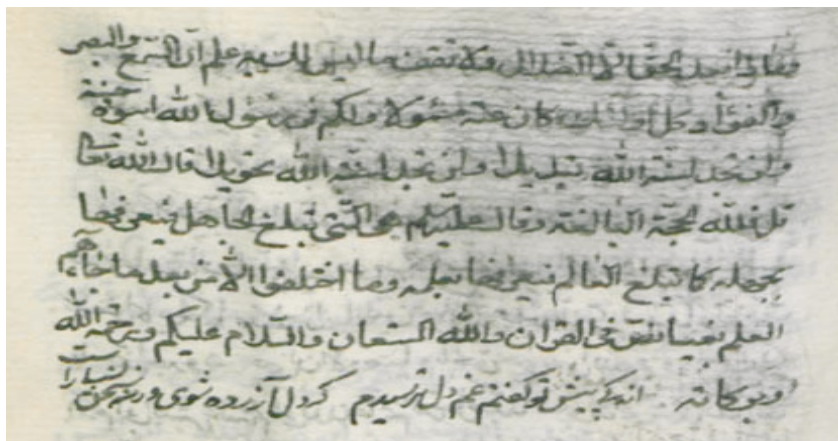 وماذا بعد الحق الا الضلال ولا تقف ما ليس لك به علم ان السمع والبصر
والفؤاد كل اولئك كان عنه مسئولا ولكم فى رسول الله اسوة حسنة
ولن تجد لسنة الله تبديلا ولن تجد لسنة الله تحويلا قال الله تعا
قل فلله الحجة البالغة وقال عليه السلم هى التى تبلغ الجاهل فيعرفها
بجهله كما تبلغ العالم فيعرفها بعلمه وما اختلفوا الا من بعد ما جاءهم
العلم بغيا بينهم فى القران والله المستعان والسلام عليكم ورحمة الله
وبركاته اندكى پيش تو گفتم غم دل ترسيدم كه دل آزرده شوى ورنه سخن بسيار است